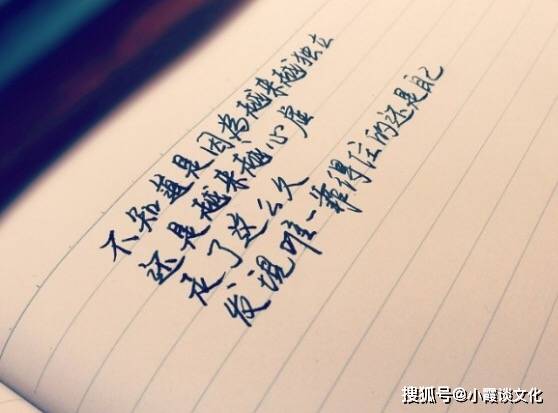 不知道是因為越来越独立
还是越来越心虚
走了这么久
发现唯一靠得住的还是自己
搜狐号@小霞谈文化